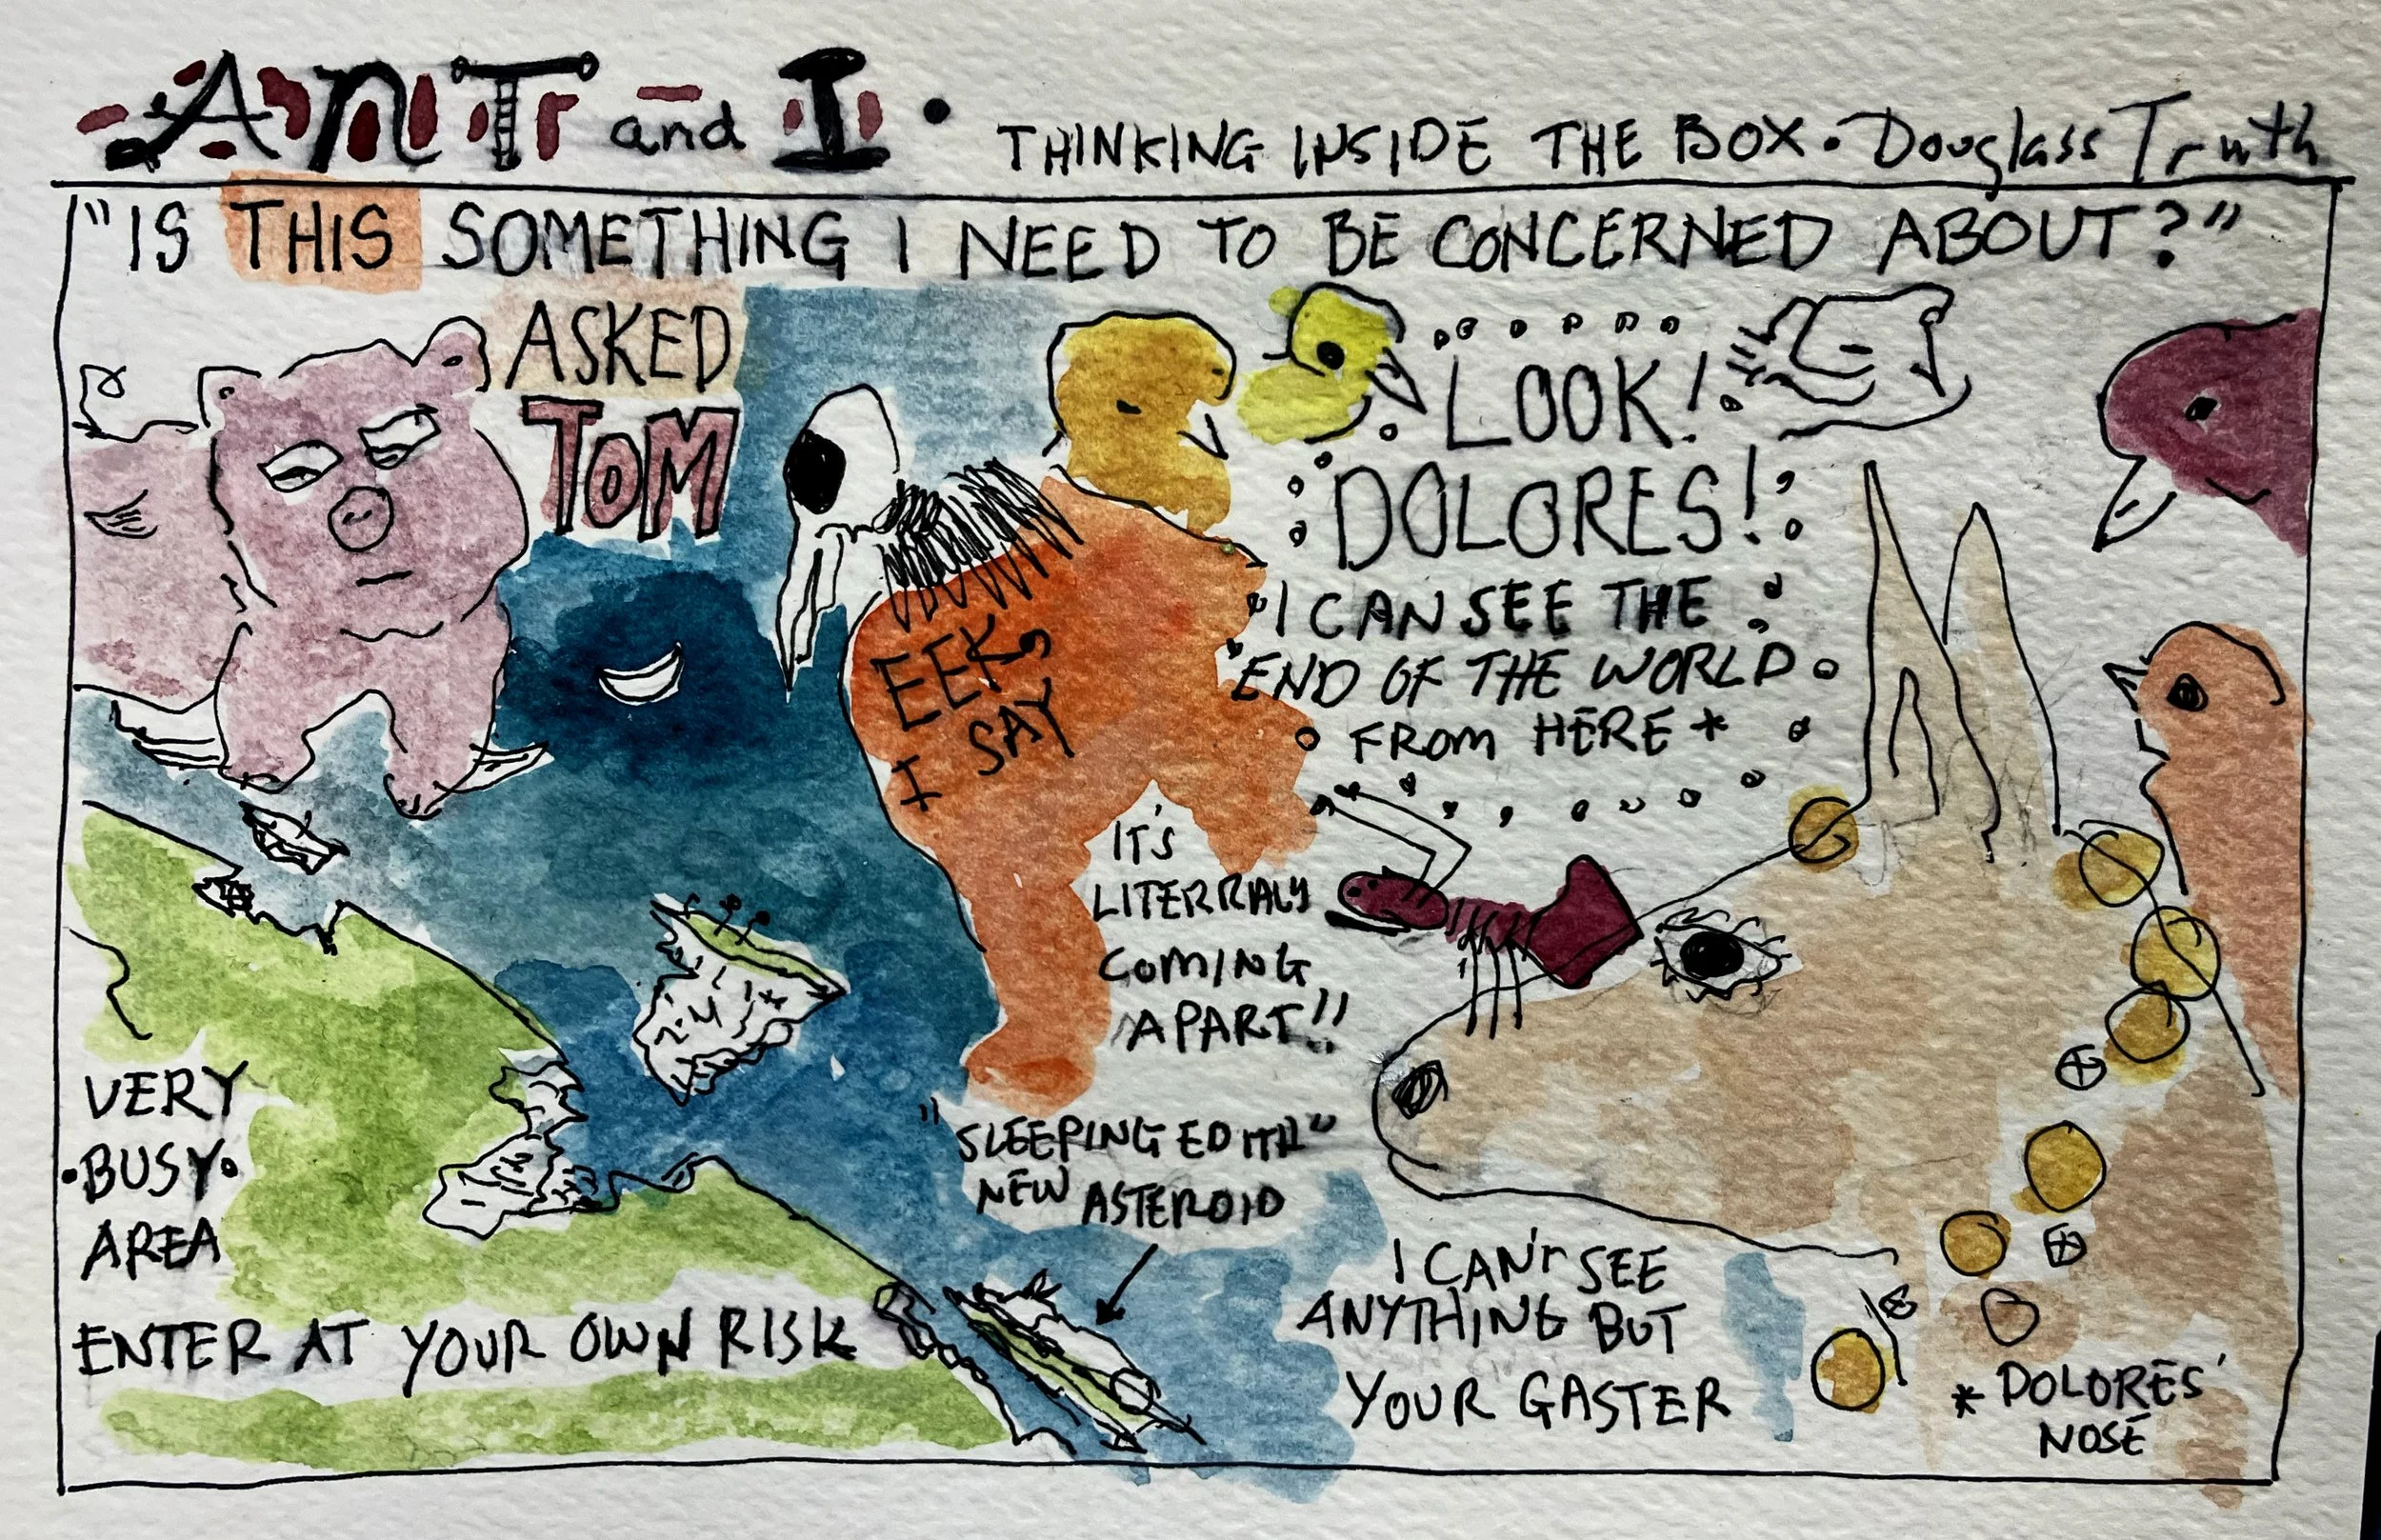 ANT and I • THINKING INSIDE THE BOX • Douglass Truth
"IS THIS SOMETHING I NEED TO BE CONCERNED ABOUT?"
ASKED
TOM
LOOK!
DOLORES!
I CAN SEE THE
END OF THE WORLD
FROM HERE *
EEK,
I SAY
IT'S
LITERRALY
COMING
APART!!
"SLEEPING EDITH"
NEW ASTEROID
VERY
• BUSY •
AREA
ENTER AT YOUR OWN RISK
I CAN'T SEE
ANYTHING BUT
YOUR GASTER
* DOLORES'
NOSE